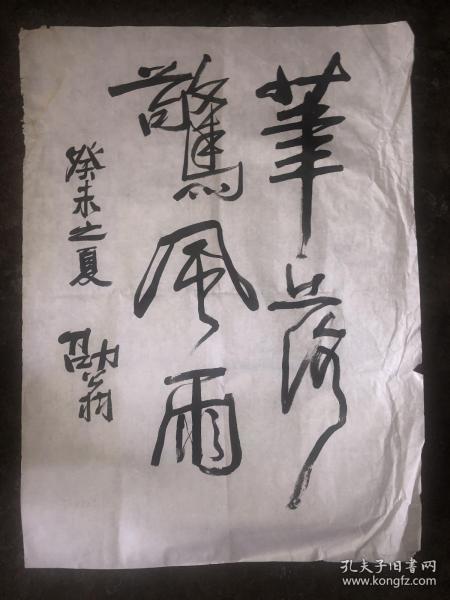 筆落
驚風雨
癸未之夏
劭翁
孔夫子旧书网
www.kongfz.com